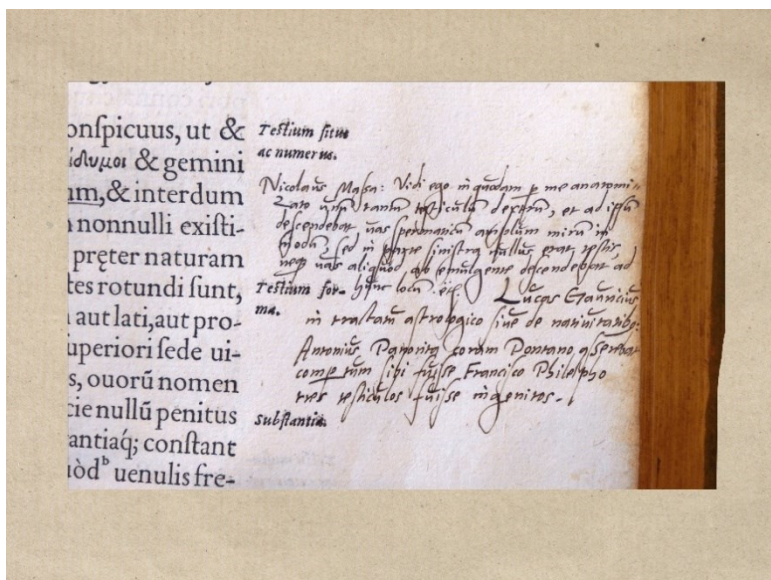 onspicuus, ut &
ίδυμοι & gemini
um, & interdum
nonnulli existi-
pręter naturam
tes rotundi sunt,
aut lati, aut pro-
uperiori sede ui-
s, ouorũ nomen
cie nullũ penitus
antiáq; constant
uòd b uenulis fre-
Testium situs
ac numerus.
Nicolaus Massa: Vidi ego in quodam p me anatomi-
zato unũ tantũ testiculũ dextrũ, et ad ipsũ
descendebat uas spermaticũ amplum mirũ in
modũ, sed in parte sinistra nullus erat testis,
neq; uas aliquod ab emulgente descendebat ad
hunc locũ.
Testium for-
ma.
Lucas Gauricus
in tractatu astrologico siue de natiuitatibo:
Antonius Panormita coram Pontano asserebat
compertum sibi fuisse Francisco Philelpho
tres testiculos fuisse ingenitos.
Substantia.